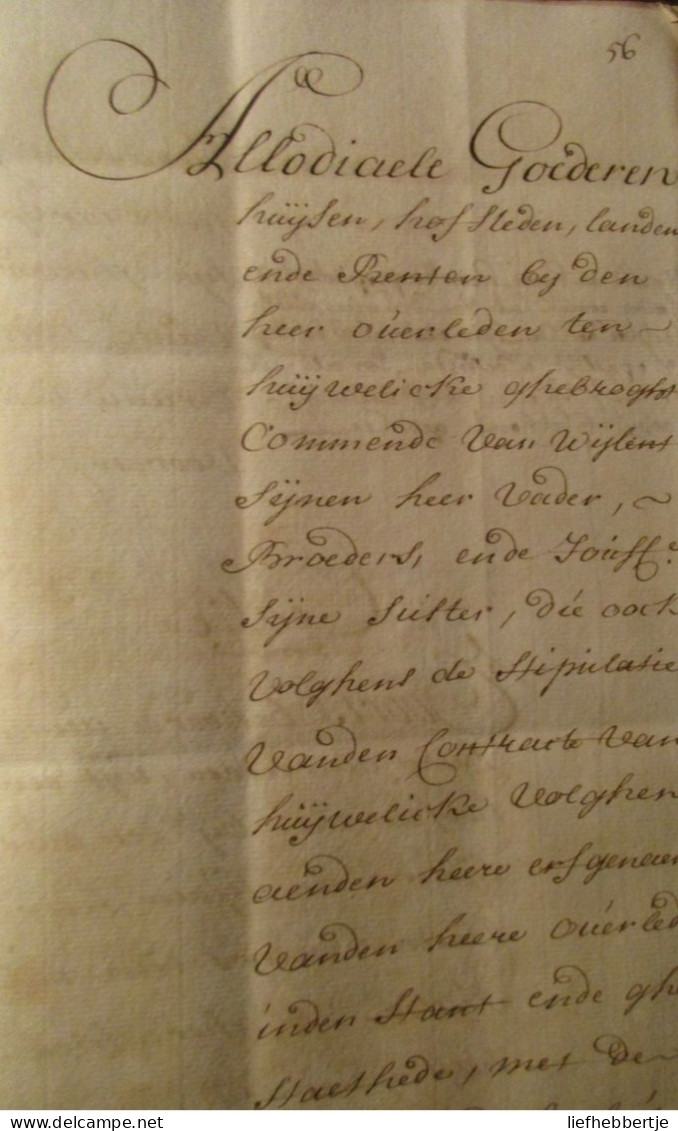 56
Allodiaele Goederen
huijsen, hofsteden, landen
ende Renten by den
heer overleden ten
huijwelicke ghebroght
Commende van wijlent
sijnen heer vader,
Broeders, ende Jouff.r
sijne suster, die oock
volghens de stipulatie
vanden Contracte van
huijwelicke volghen
aenden heere erfgenaem
vanden heere overled
inden stant ende gh
staethede, met de
www.delcampe.net
liefhebbertje